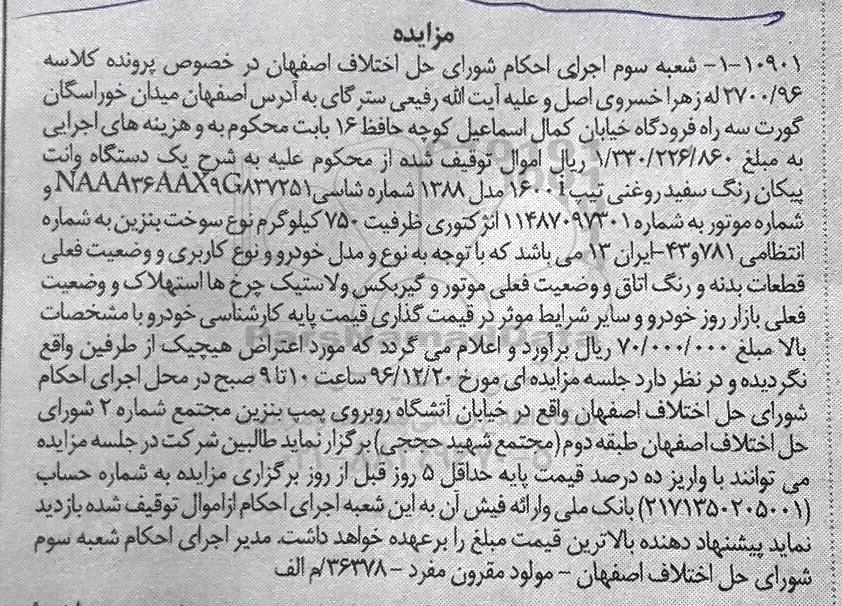 مزایده
۱-۱۰۹۰۱- شعبه سوم اجرای احکام شورای حل اختلاف اصفهان در خصوص پرونده کلاسه
۲۷۰۰/۹۶ له زهرا خسروی اصل و علیه آیت الله رفیعی سترگای به آدرس اصفهان میدان خوراسگان
گورت سه راه فرودگاه خیابان کمال اسماعیل کوچه حافظ ۱۶ بابت محکوم به و هزینه های اجرایی
به مبلغ ۱/۳۳۰/۲۲۶/۸۶۰ ریال اموال توقیف شده از محکوم علیه به شرح یک دستگاه وانت
پیکان رنگ سفید روغنی تیپ ۱۶۰۰i مدل ۱۳۸۸ شماره شاسی NAAA۳۶AAX۹G۸۳۷۲۵۱ و
شماره موتور به شماره ۱۱۴۸۷۰۹۷۳۰۱ انژکتوری ظرفیت ۷۵۰ کیلوگرم نوع سوخت بنزین به شماره
انتظامی ۷۸۱و۴۳-ایران ۱۳ می باشد که با توجه به نوع و مدل خودرو و نوع کاربری و وضعیت فعلی
قطعات بدنه و رنگ اتاق و وضعیت فعلی موتور و گیربکس ولاستیک چرخ ها استهلاک و وضعیت
فعلی بازار روز خودرو و سایر شرایط موثر در قیمت گذاری قیمت پایه کارشناسی خودرو با مشخصات
بالا مبلغ ۷۰/۰۰۰/۰۰۰ ریال برآورد و اعلام می گردد که مورد اعتراض هیچیک از طرفین واقع
نگردیده و در نظر دارد جلسه مزایده ای مورخ ۹۶/۱۲/۲۰ ساعت ۱۰تا۹ صبح در محل اجرای احکام
شورای حل اختلاف اصفهان واقع در خیابان آتشگاه روبروی پمپ بنزین مجتمع شماره ۲ شورای
حل اختلاف اصفهان طبقه دوم (مجتمع شهید حججی) برگزار نماید طالبین شرکت در جلسه مزایده
می توانند با واریز ده درصد قیمت پایه حداقل ۵ روز قبل از روز برگزاری مزایده به شماره حساب
(۲۱۷۱۳۵۰۲۰۵۰۰۱) بانک ملی وارائه فیش آن به این شعبه اجرای احکام ازاموال توقیف شده بازدید
نماید پیشنهاد دهنده بالاترین قیمت مبلغ را برعهده خواهد داشت. مدیر اجرای احکام شعبه سوم
شورای حل اختلاف اصفهان - مولود مقرون مفرد - ۳۶۳۷۸/م الف